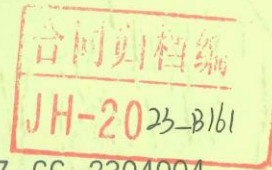 合同归档编
JH-2023-B161